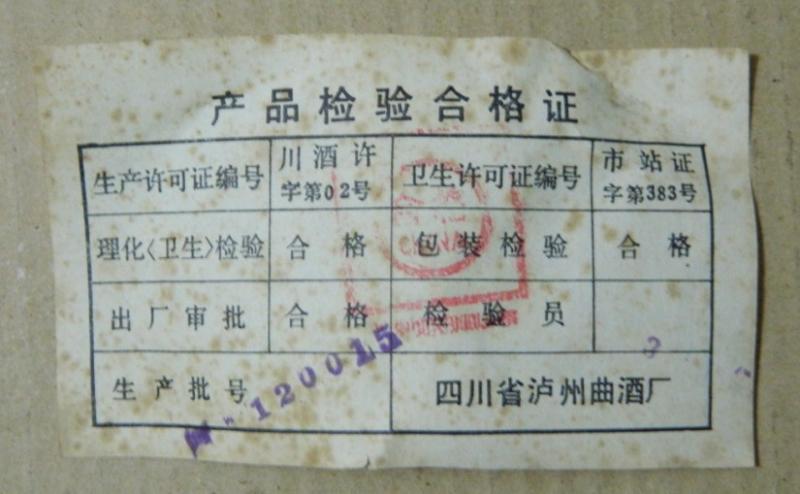 产品检验合格证
生产许可证编号
川酒许
字第02号
卫生许可证编号
市站证
字第383号
理化〈卫生〉检验
合格
包装检验
合格
出厂审批
合格
检验员
3
生产批号
120015
四川省泸州曲酒厂
CHINA